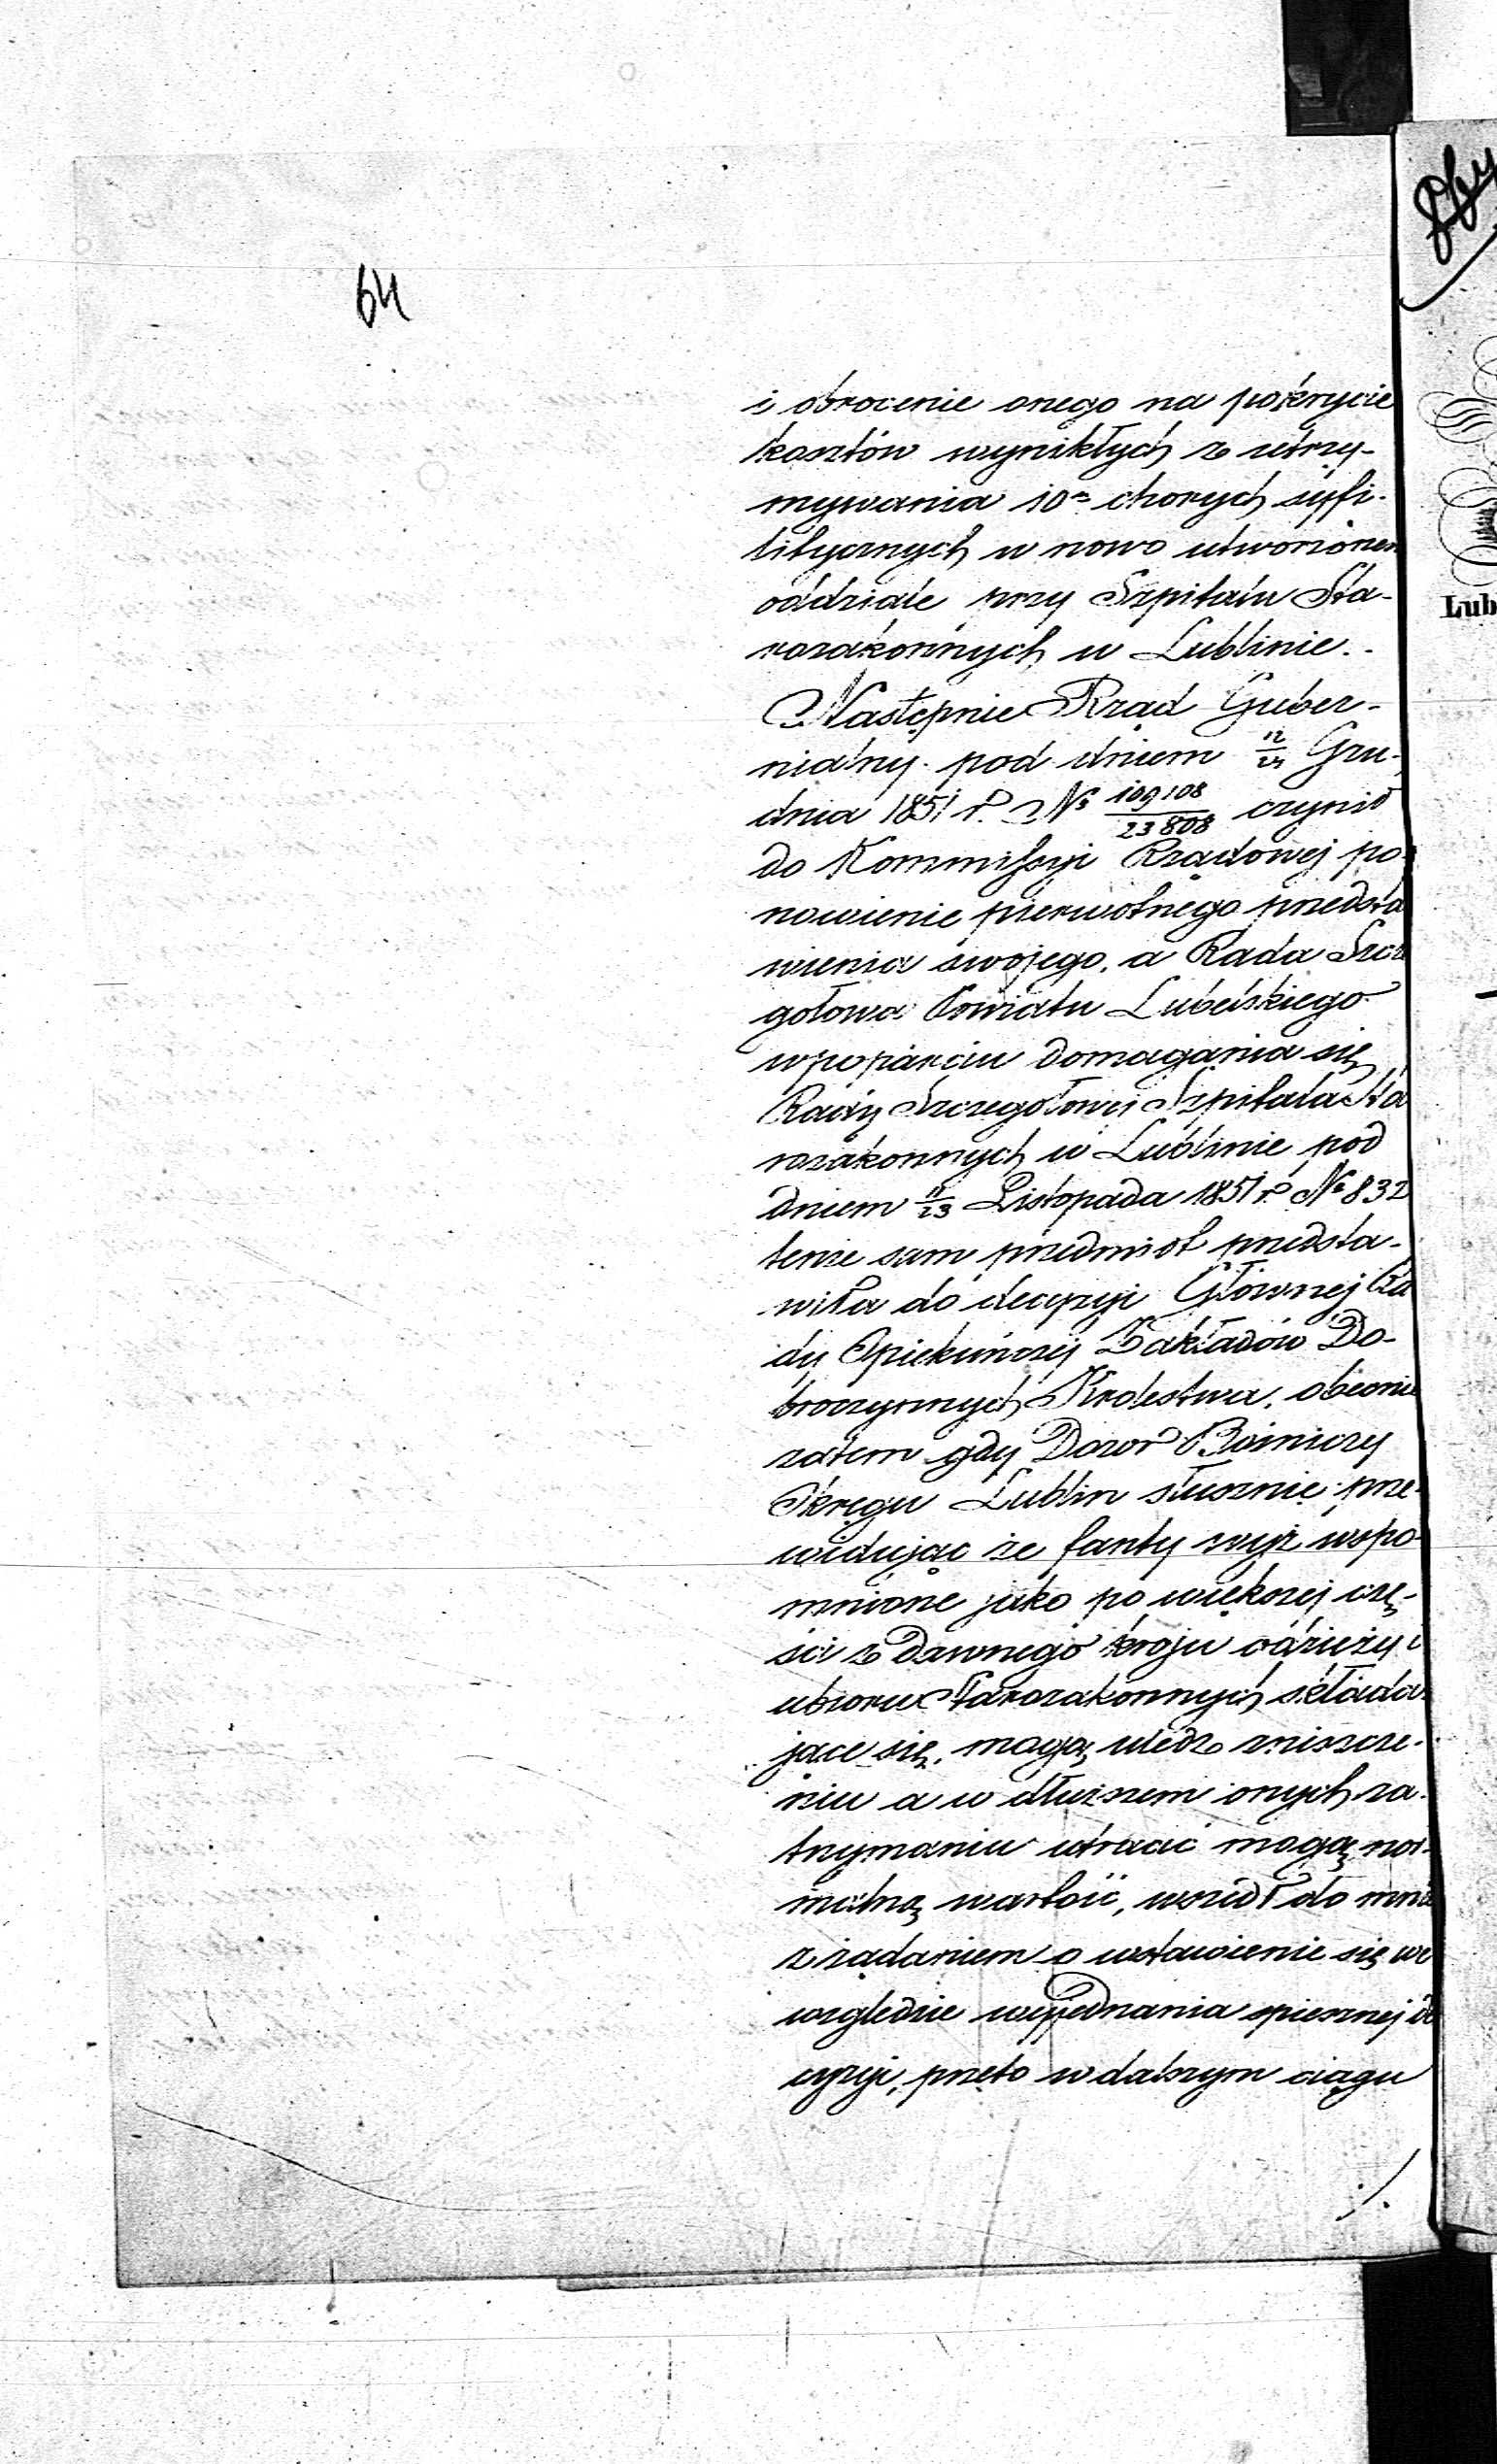 64
i obrocenie onego na pokrycie
kosztów wynikłych z utrzy-
mywania 10ᵘ chorych syfi-
litycznych w nowo utworzonem
oddziale przy Szpitalu Sta-
rozakonnych w Lublinie.
Następnie Rząd Guber-
nialny pod dniem 12/24 Gru-
dnia 1851 r. № 109108/23808 czynił
do Kommissyi Rządowej po-
nowienie pierwotnego przedsta
wienia swojego, a Rada Szcze
gołowa Powiatu Lubelskiego
w poparciu domagania się
Rady Szczegołowej Szpitala Sta
rozakonnych w Lublinie pod
dniem 11/23 Listopada 1851 r. № 832
tenże sam przedmiot przedsta-
wiła do decyzyi Głównej Ra
dy Opiekuńczej Zakładów Do-
broczynnych Krolestwa, obecnie
zatem gdy Dozor Bożniczy
Okręgu Lublin słusznie prze-
widując że fanty wyż wspo-
mnione jako po większej czę-
ści z dawnego kroju odzieży i
ubioru Starozakonnych składa-
jące się, mogą uledz zniszcze-
niu a w dłuższem onych za-
trzymaniu utracić mogą no-
minalną wartość, wszedł do mnie
z żądaniem o wstawienie się we
względzie wyjednania spiesznej de
cyzyi, przeto w dalszym ciągu
./.
Lub